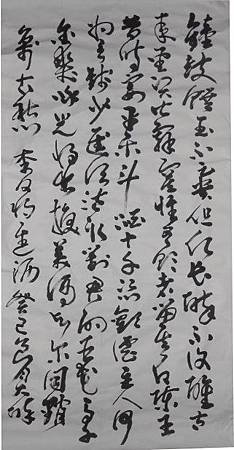 鐘鼓饌玉不足貴但願長醉不復醒古
來聖賢皆寂寞惟有飲者留其名陳王
昔時宴平樂斗酒十千恣歡謔主人何
為言少錢徑須沽取對君酌五花馬千
金裘呼兒將出換美酒與爾同銷
萬古愁 李白將進酒 癸巳